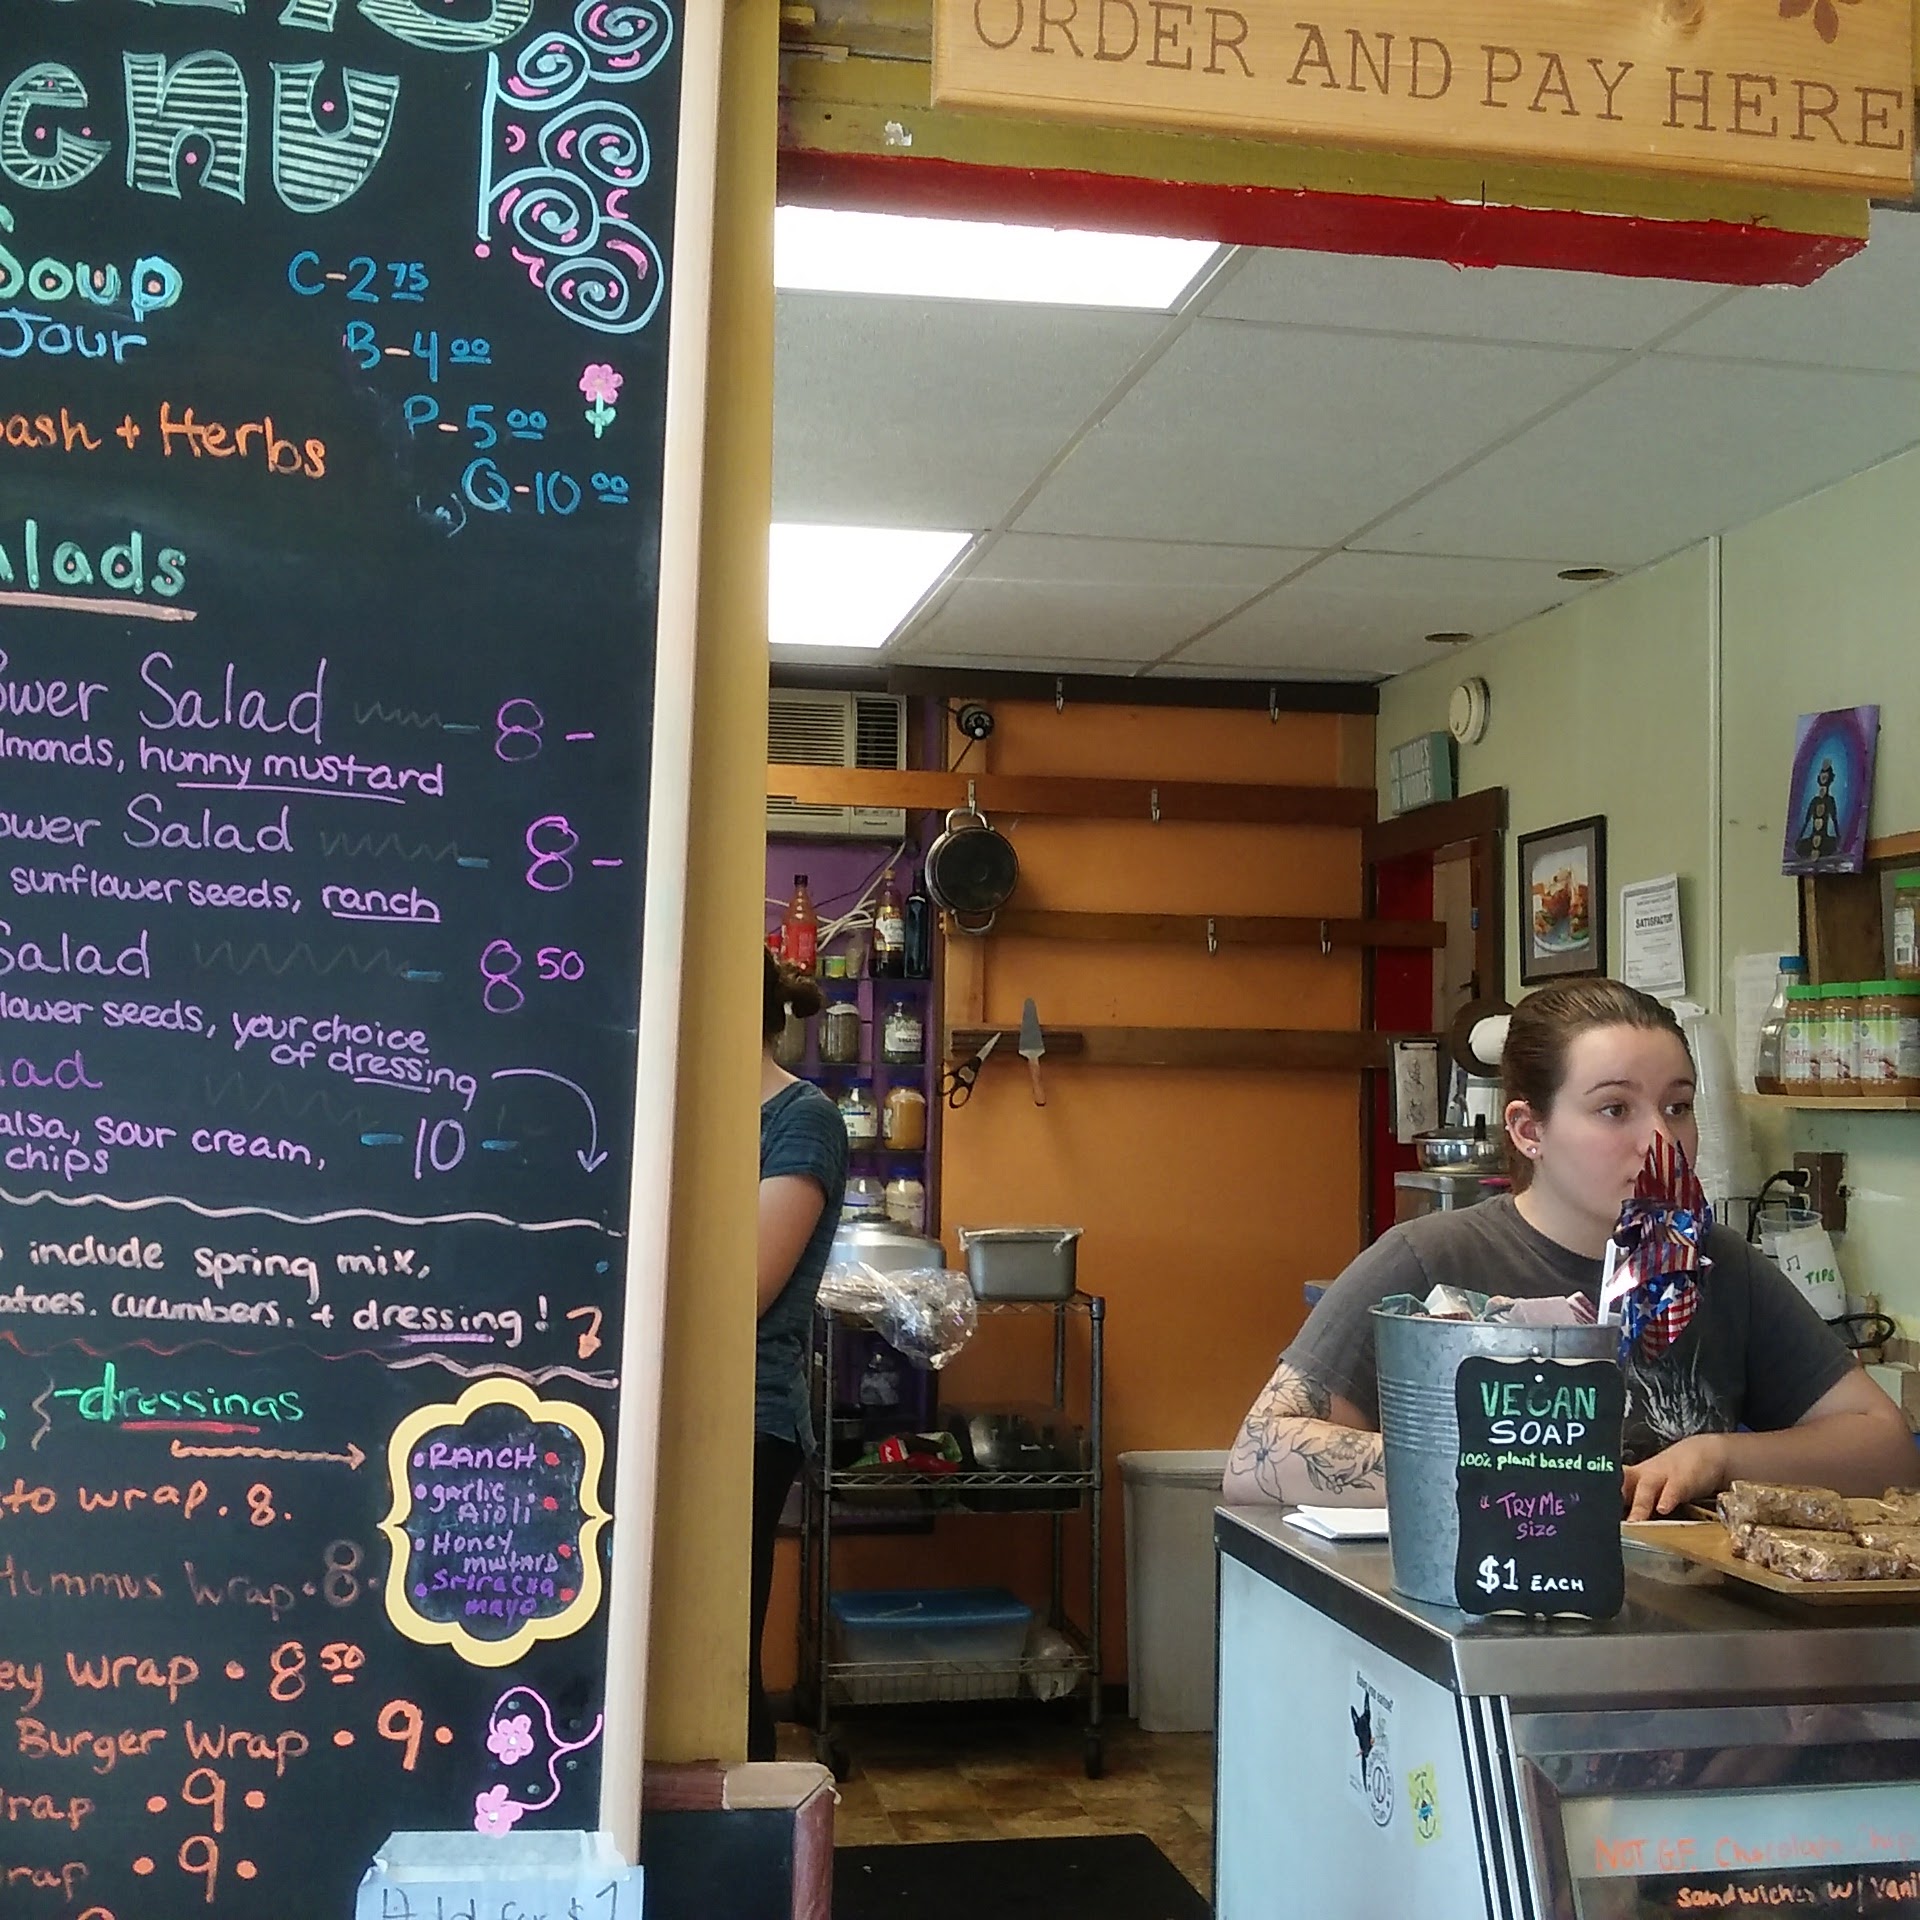 enu
Soup C-2 75
Jour B-4 00
P-5 00
ash + Herbs
Q-10 00
alads
ower Salad 8 -
lmonds, hunny mustard
ower Salad 8 -
sunflower seeds, ranch
Salad 8 50
lower seeds, your choice
of dressing
ad
alsa, sour cream, -10-
chips
include spring mix,
atoes. cucumbers. + dressing!
-dressings
to wrap. 8.
Hummus Wrap. 8.
ey wrap • 8 50
Burger Wrap • 9 •
rap • 9 •
rap • 9 •
• RANCH
• garlic
Aioli
• Honey
mustard
• Sriracha
mayo
Add for $1
ORDER AND PAY HERE
SATISFACTORY
TIPS
VEGAN
SOAP
100% plant based oils
"TRY ME"
size
$1 EACH
NOT GF Chocolate Chip
sandwiches w/ Vani